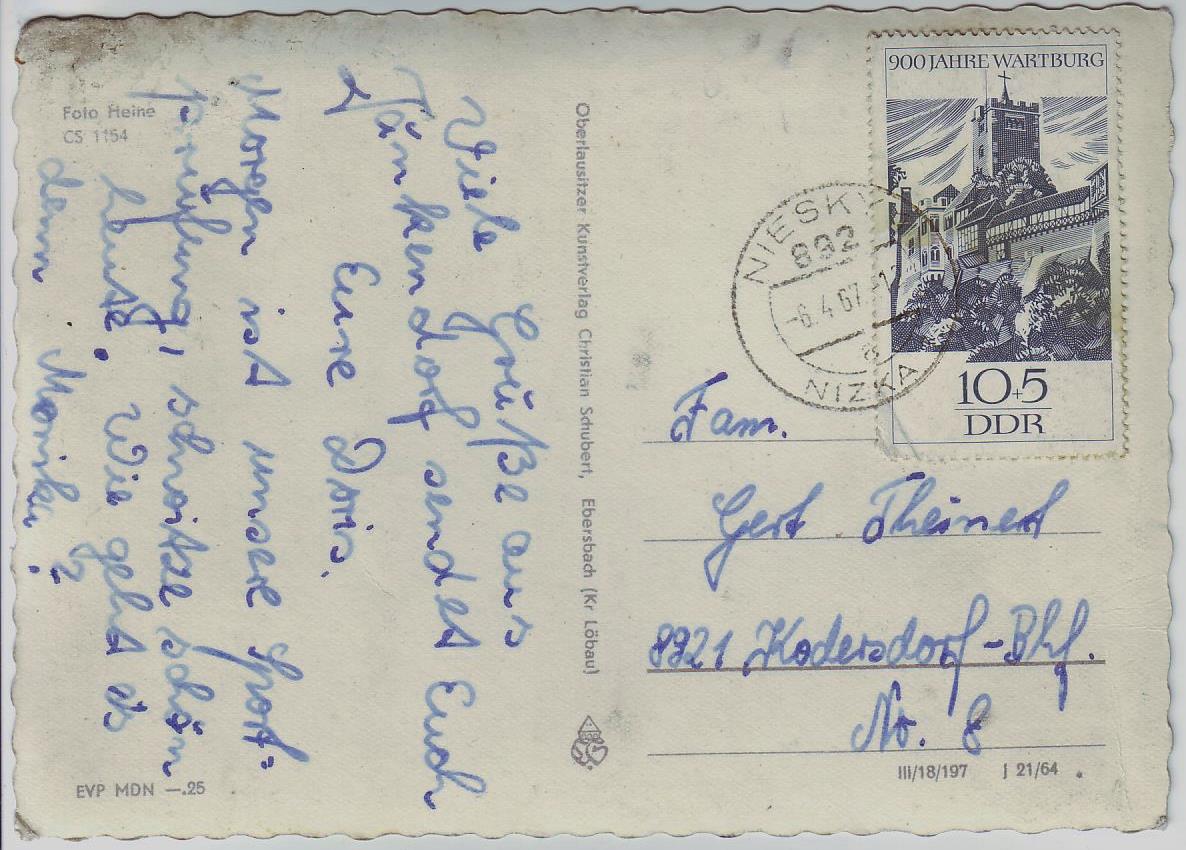 Foto Heine
CS 1154
Viele Grüße aus
Jänkendorf sendet Euch
Eure Doris.
Morgen ist unsere Sport-
prüfung, schwitze schon
heute. Wie geht es
denn Monika?
EVP MDN —.25
Oberlausitzer Kunstverlag Christian Schubert, Ebersbach (Kr Löbau)
900 JAHRE WARTBURG
10+5
DDR
NIESKY
892
-6.4.67
a
NIZKA
Fam.
Gert Theinert
8921 Kodersdorf-Bhf.
No. 8
III/18/197 J 21/64